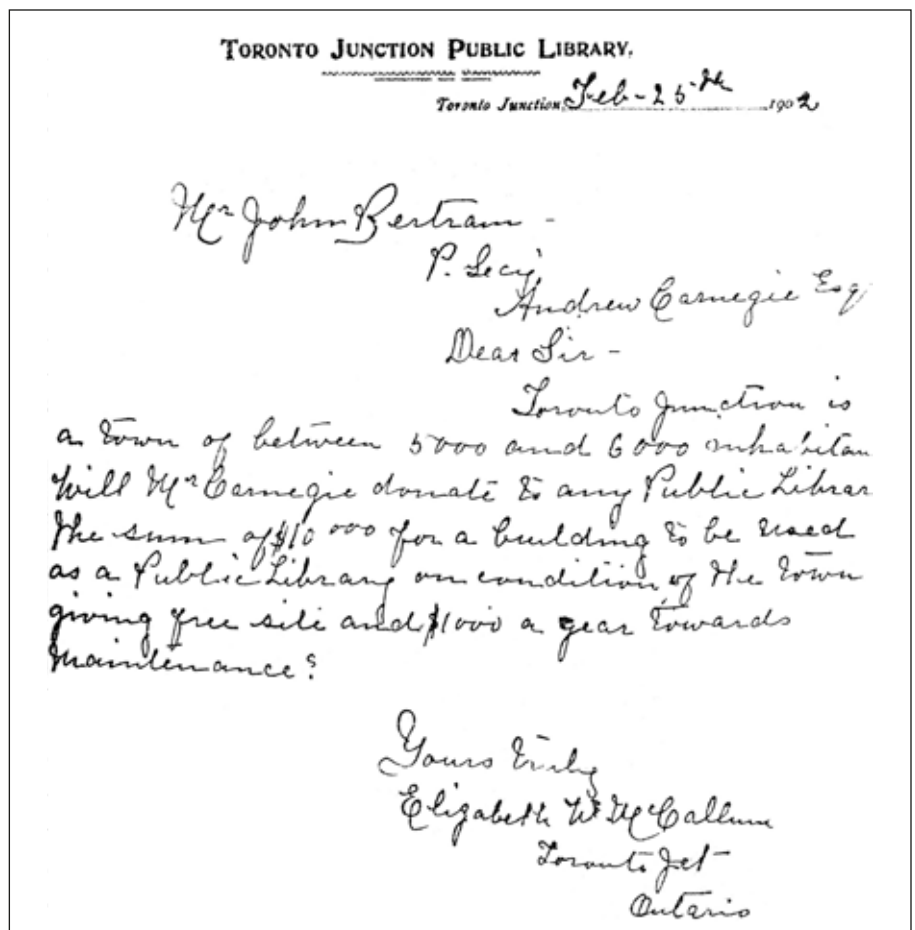 TORONTO JUNCTION PUBLIC LIBRARY.
Toronto Junction, Feb - 25th 1902
Mr John Bertram -
P. Secy
Andrew Carnegie Esq
Dear Sir -
Toronto Junction is
a town of between 5000 and 6000 inhabitan
Will Mr Carnegie donate to any Public Librar
the sum of $10 000 for a building to be used
as a Public Library on condition of the town
giving free site and $1000 a year towards
Maintenance?
Yours truly
Elizabeth W. McCallum
Toronto Jct
Ontario